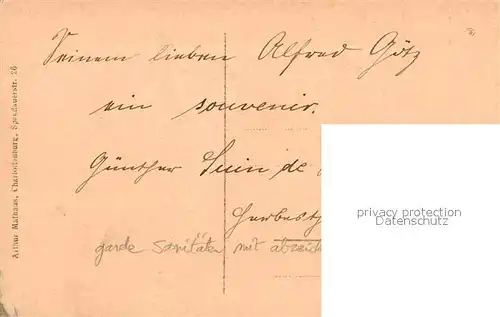 Seinem lieben Alfred Götz
ein souvenir.
Günther Suin de
Herbest
garde Sanitäter mit abzeich
Arthur Rathaus, Charlottenburg, Spandauerstr. 26
privacy protection
Datenschutz